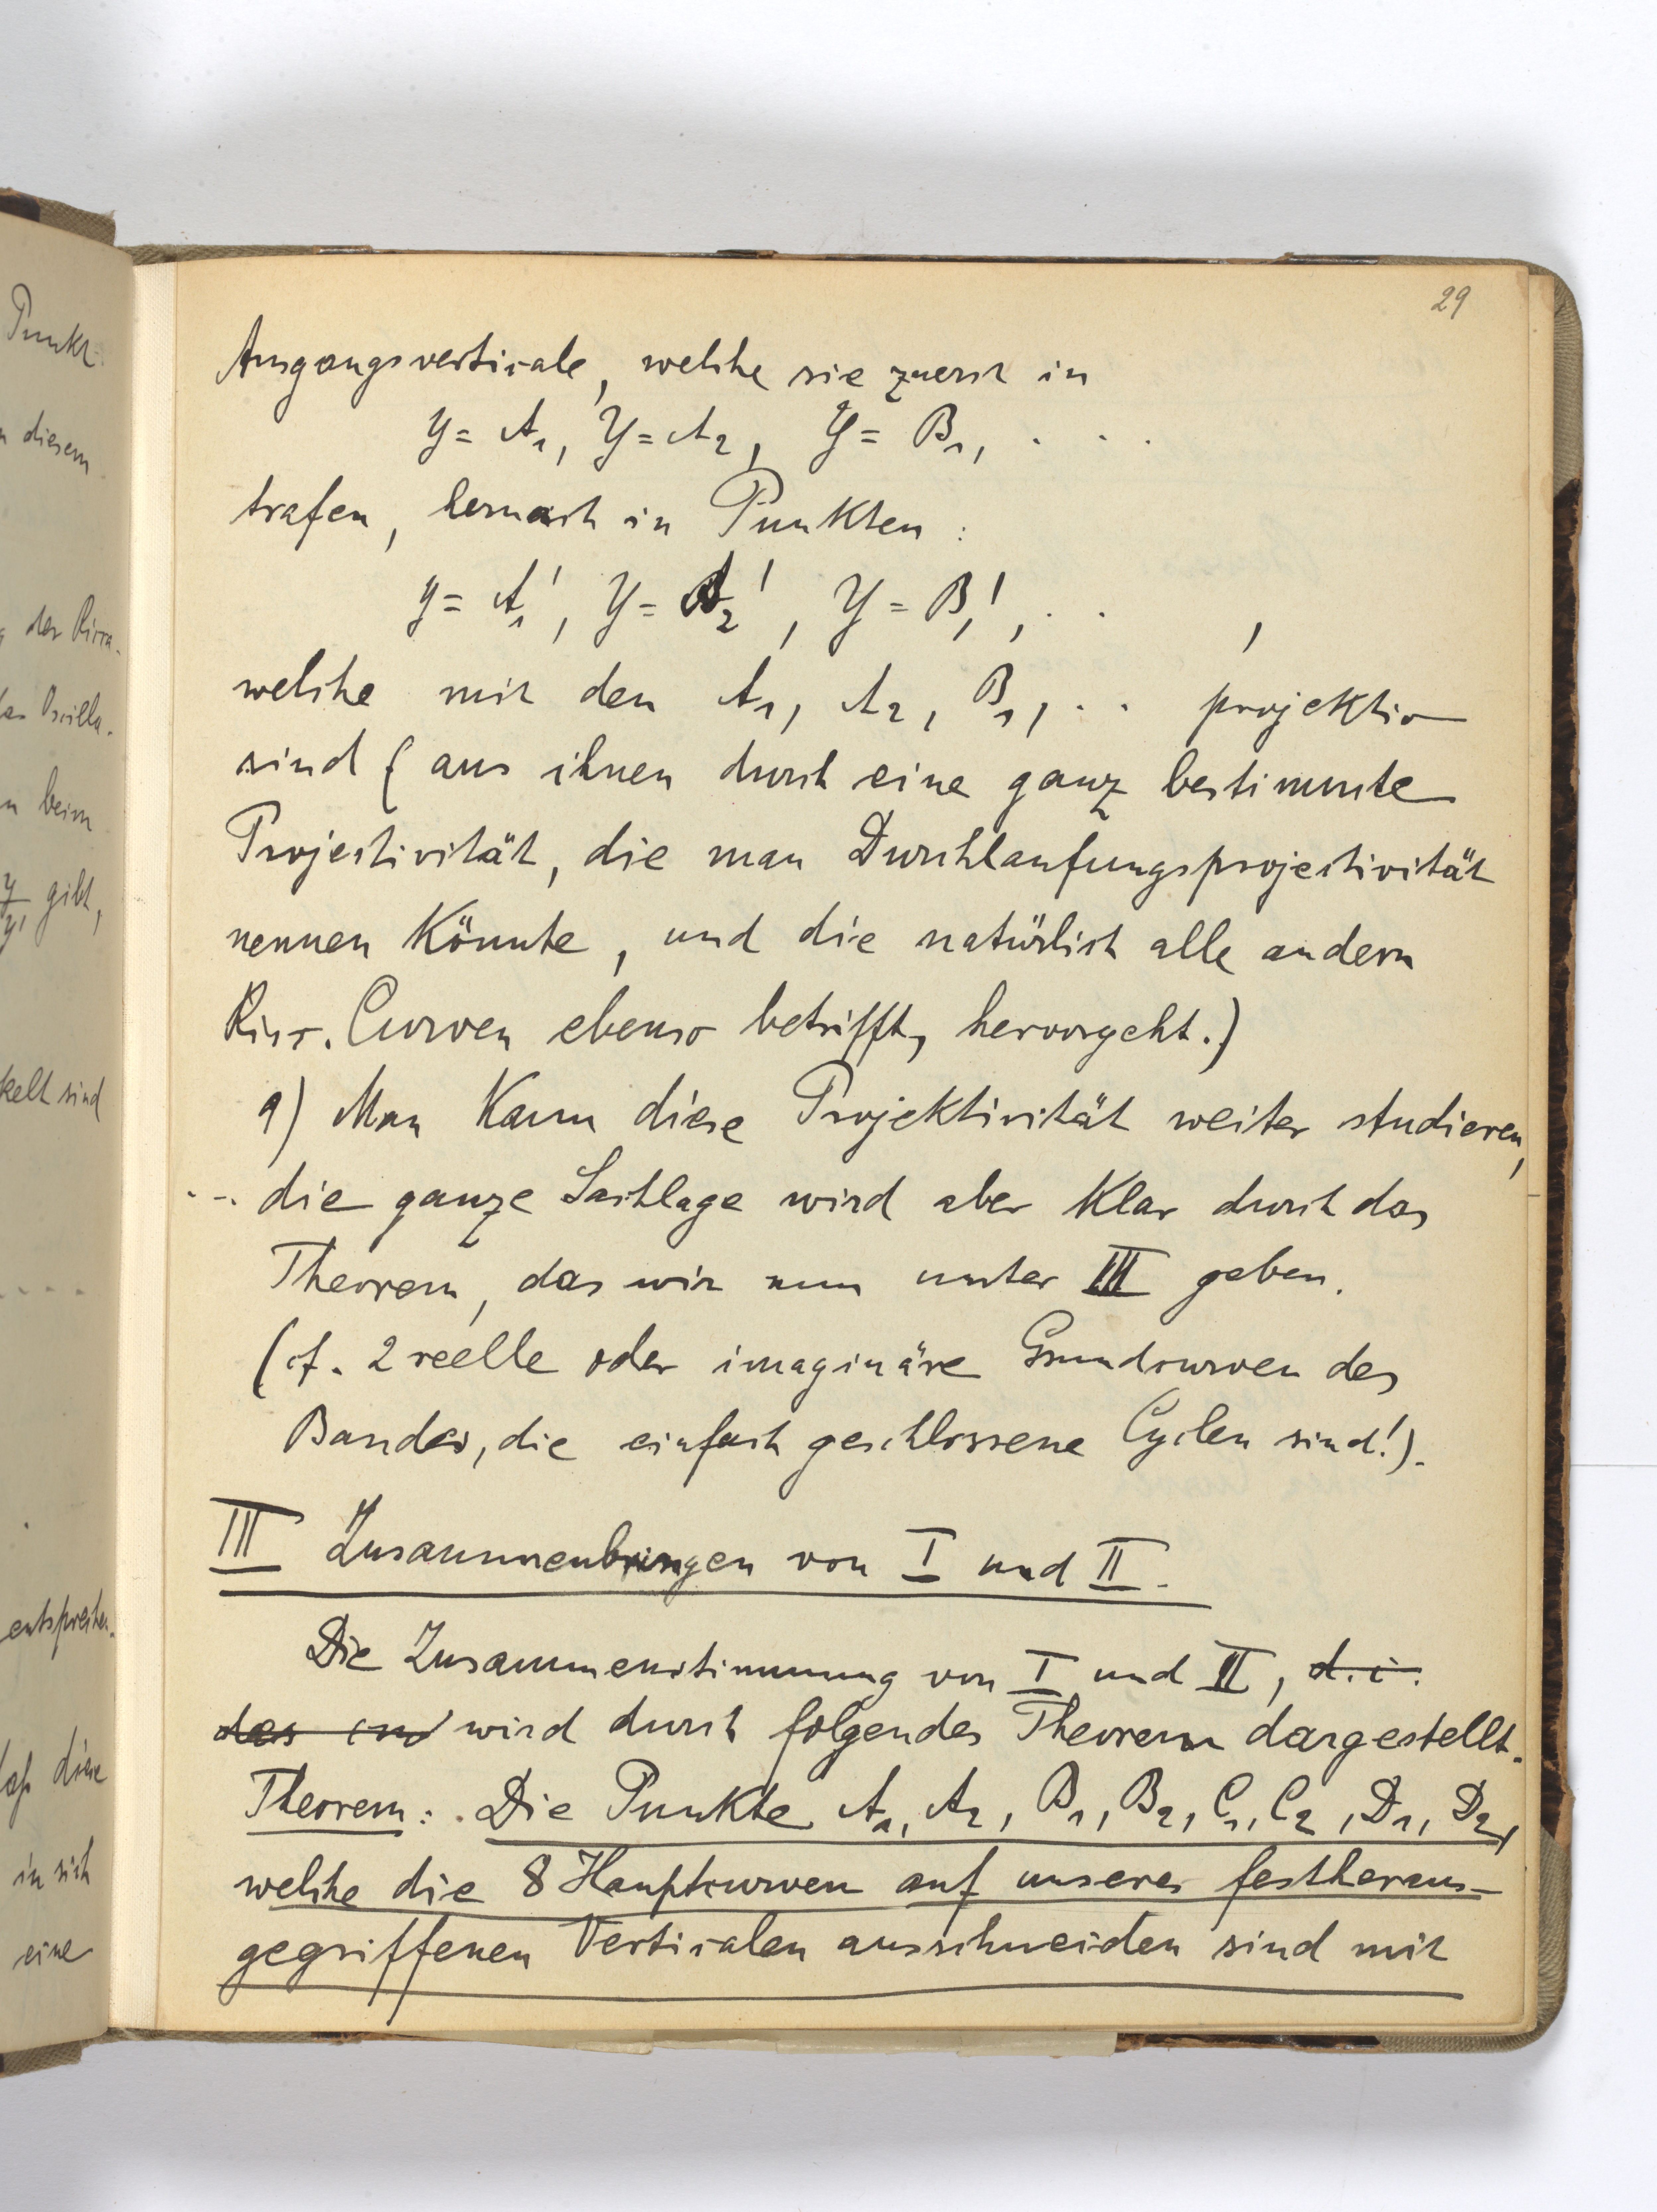 Punkt
n diesem
der Ricca-
Oscilla-
n beim
gibt,
kelt sind
entsprechen.
diese
in sich
eine
29
Ausgangsverticale, welche sie zuerst in
y = A₁, y = A₂, y = B₁, . . .
trafen, hernach in Punkten :
y = A₁', y = A₂', y = B₁', . . ,
welche mit den A₁, A₂, B₁, . . projektiv
sind (aus ihnen durch eine ganz bestimmte
Projectivität, die man Durchlaufungsprojectivität
nennen könnte, und die natürlich alle andern
Ricc. Curven ebenso betrifft, hervorgeht.)
9) Man kann diese Projektivität weiter studieren,
--. die ganze Sachlage wird aber klar durch das
Theorem, das wir nun unter III geben.
(cf. 2 reelle oder imaginäre Grundcurven des
Bandes, die einfach geschlossene Cyclen sind!).
III Zusammenbringen von I und II.
Die Zusammenstimmung von I und II, d.i.
das wird durch folgendes Theorem dargestellt.
Theorem: Die Punkte A₁, A₂, B₁, B₂, C₁, C₂, D₁, D₂,
welche die 8 Hauptcurven auf unserer festheraus-
gegriffenen Verticalen ausschneiden sind mit